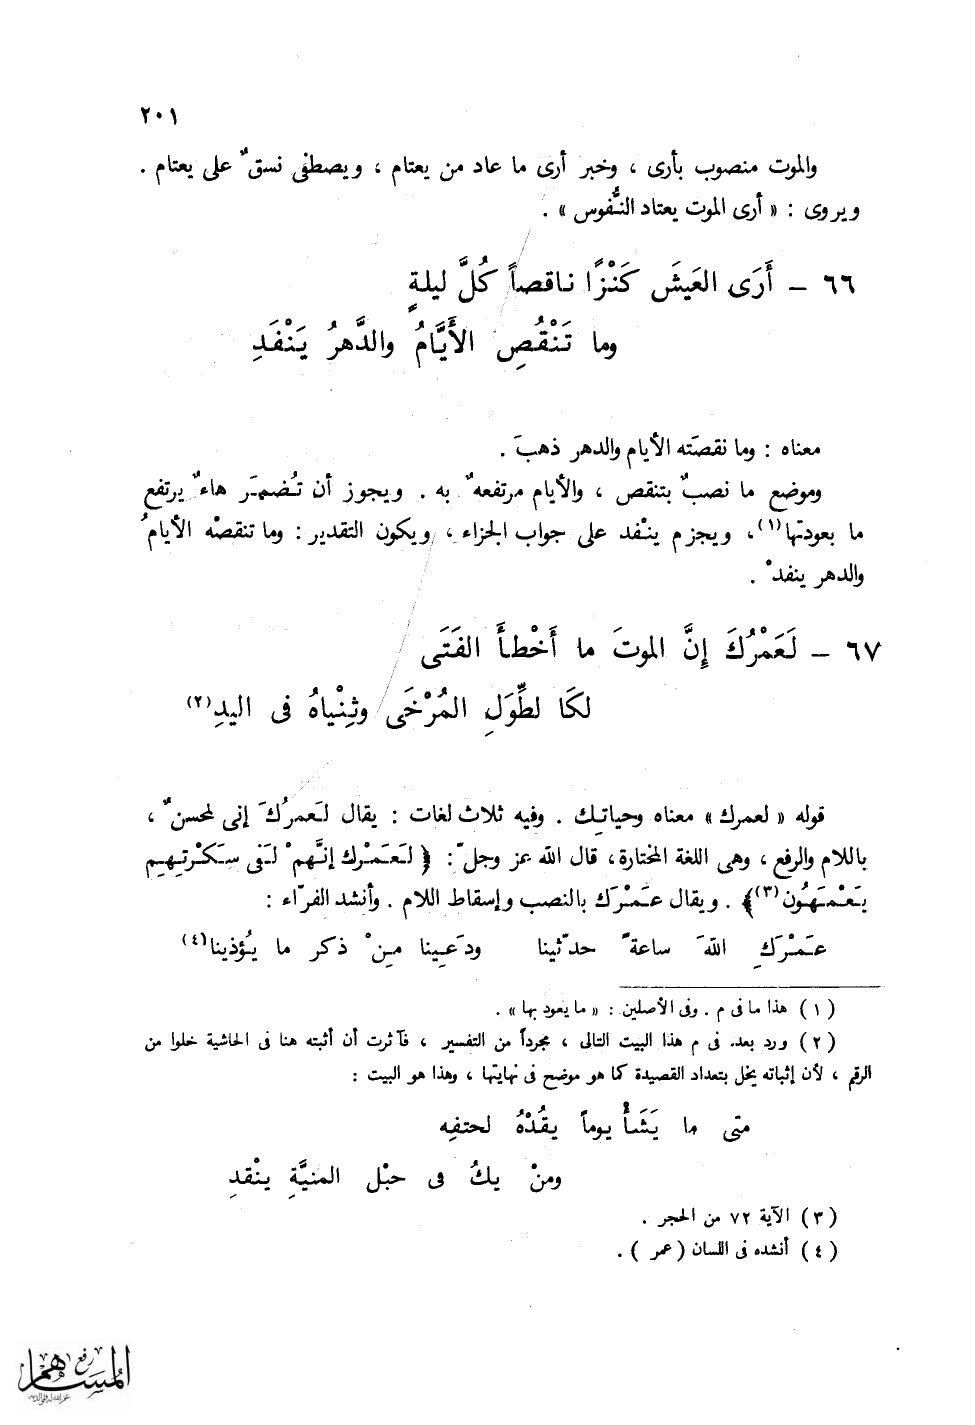 ٢٠١
والموت منصوب بأرى ، وخبر أرى ما عاد من يعتام ، ويصطفى نسقٌ على يعتام .
ويروى : « أرى الموت يعتاد النُّفوس » .
٦٦ – أَرَى العَيشَ كَنْزًا ناقصاً كُلَّ ليلةٍ
وما تَنْقُصِ الأَيَّامُ والدَّهرُ يَنْفَدِ
معناه : وما نقصَته الأيام والدهر ذهبَ .
وموضع ما نصبٌ بتنقص ، والأيام مرتفعةٌ به . ويجوز أن تُضمَر هاءٌ يرتفع
ما بعودتها(١)، ويجزم ينْفد على جواب الجزاء ، ويكون التقدير : وما تنقصْه الأيامُ
والدهر ينفدْ .
٦٧ – لَعَمْرُكَ إِنَّ الموتَ ما أَخْطأَ الفَتَى
لكَا لطِّوَلِ المُرْخَى وثِنْياهُ فى اليدِ(٢)
قوله « لعمرك » معناه وحياتِك . وفيه ثلاث لغات : يقال لَعمرُكَ إنى لمحسنٌ ،
باللام والرفع ، وهى اللغة المختارة، قال الله عز وجلّ : ﴿ لَعَمْرك إنَّهمْ لَفى سَكْرتِهِم
يَعْمَهُون(٣)﴾ . ويقال عَمْرَك بالنصب وإسقاط اللام . وأنشد الفرّاء :
عَمْرَكِ اللهَ ساعةً حدّثينا ودَعِينا مِنْ ذكر ما يُؤذينا(٤)
(١) هذا ما فى م . وفى الأصلين : « ما يعود بها » .
(٢) ورد بعد. فى م هذا البيت التالى ، مجرداً من التفسير ، فآثرت أن أثبته هنا فى الحاشية خلوا من
الرقم ، لأن إثباته يخل بتعداد القصيدة كما هو موضح فى نهايتها ، وهذا هو البيت :
متى ما يَشَأْ يوماً يقُدْهُ لحتفِه
ومنْ يكُ فى حبْل المنيَّةِ ينْقدِ
(٣) الآية ٧٢ من الحجر .
(٤) أنشده فى اللسان (عمر ) .